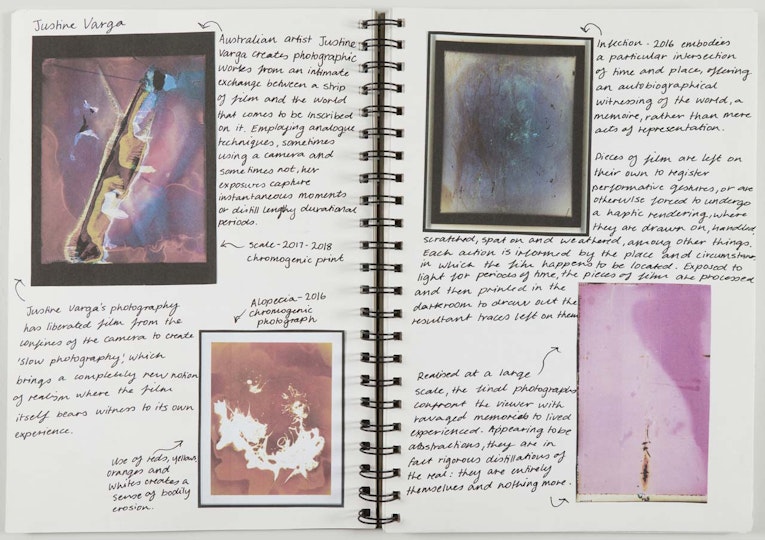 Justine Varga
Australian artist Justine
Varga creates photographic
works from an intimate
exchange between a strip
of film and the world
that comes to be inscribed
on it. Employing analogue
techniques, sometimes
using a camera and
sometimes not, her
exposures capture
instantaneous moments
or distill lengthy durational
periods.
Scale - 2017-2018
chromogenic print
Justine Varga's photography
has liberated film from the
confines of the camera to create
'slow photography', which
brings a completely new notion
of realism where the film
itself bears witness to its own
experience.
Alopecia - 2016
chromogenic
photograph
Use of reds, yellows,
oranges and
whites creates a
sense of bodily
erosion.
Infection - 2016 embodies
a particular intersection
of time and place, offering
an autobiographical
witnessing of the world, a
memoire, rather than mere
acts of representation.
Pieces of film are left on
their own to register
performative gestures, or are
otherwise forced to undergo
a haptic rendering, where
they are drawn on, handled,
scratched, spat on and weathered, among other things.
Each action is informed by the place and circumstance
in which the film happens to be located. Exposed to
light for periods of time, the pieces of film are processed
and then printed in the
darkroom to draw out the
resultant traces left on them
Realised at a large
scale, the final photographs
confront the viewer with
ravaged memories to lived
experienced. Appearing to be
abstractions, they are in
fact rigorous distillations of
the real: they are entirely
themselves and nothing more.